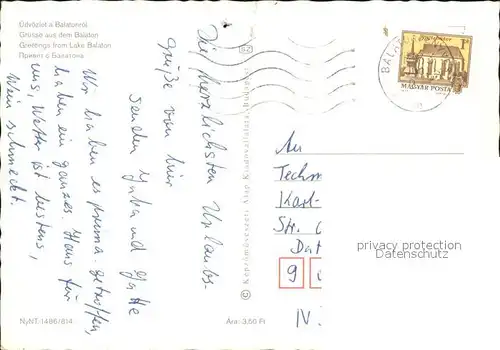 Üdvözlet a Balatonról
Grüsse aus dem Balaton
Greetings from Lake Balaton
Привет с Балатона
Die herzlichsten Urlaubs-
grüße von hier
senden Jutta und
Wir haben es prima getroffen,
haben ein ganzes Haus für
uns, Wetter ist bestens,
Wein schmeckt.
NyNT-1486/814
Ára: 3,50 Ft
© Képzőművészeti Alap Kiadóvállalata, Budapest
BALATON
1 Ft
MAGYAR POSTA
An
Techn
Karl-
Str.
Dat
9
IV
privacy protection
Datenschutz